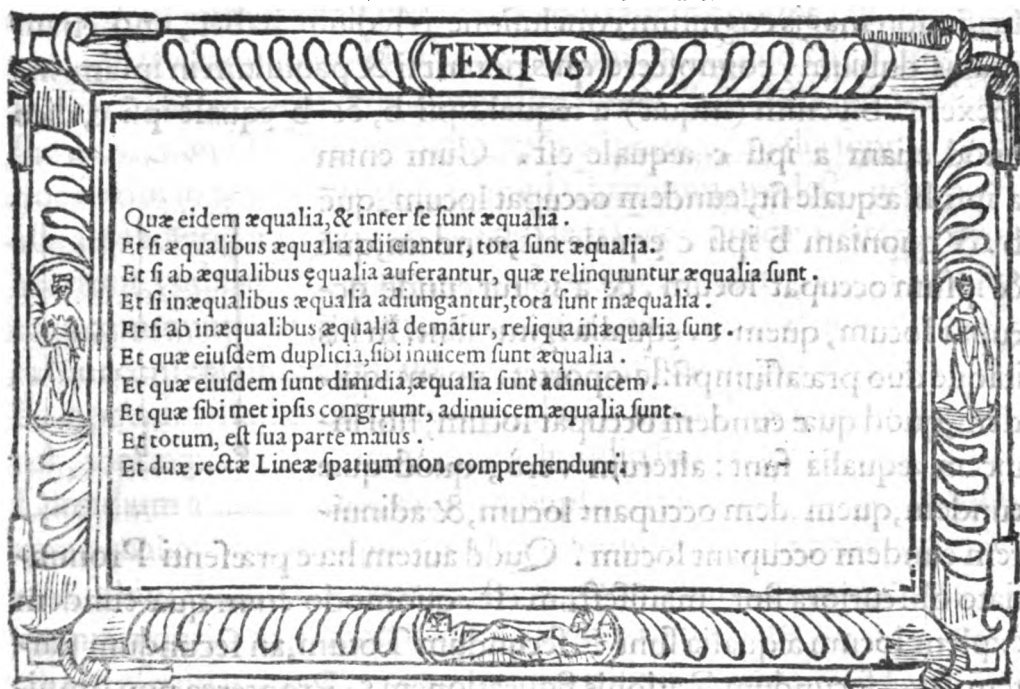 TEXTVS
Quæ eidem æqualia, & inter se sunt æqualia.
Et si æqualibus æqualia adijciantur, tota sunt æqualia.
Et si ab æqualibus ęqualia auferantur, quæ relinquuntur æqualia sunt.
Et si inæqualibus æqualia adiungantur, tota sunt inæqualia.
Et si ab inæqualibus æqualia demātur, reliqua inæqualia sunt.
Et quæ eiusdem duplicia, sibi inuicem sunt æqualia.
Et quæ eiusdem sunt dimidia, æqualia sunt adinuicem.
Et quæ sibi met ipsis congruunt, adinuicem æqualia sunt.
Et totum, est sua parte maius.
Et duæ rectæ Lineæ spatium non comprehendunt.